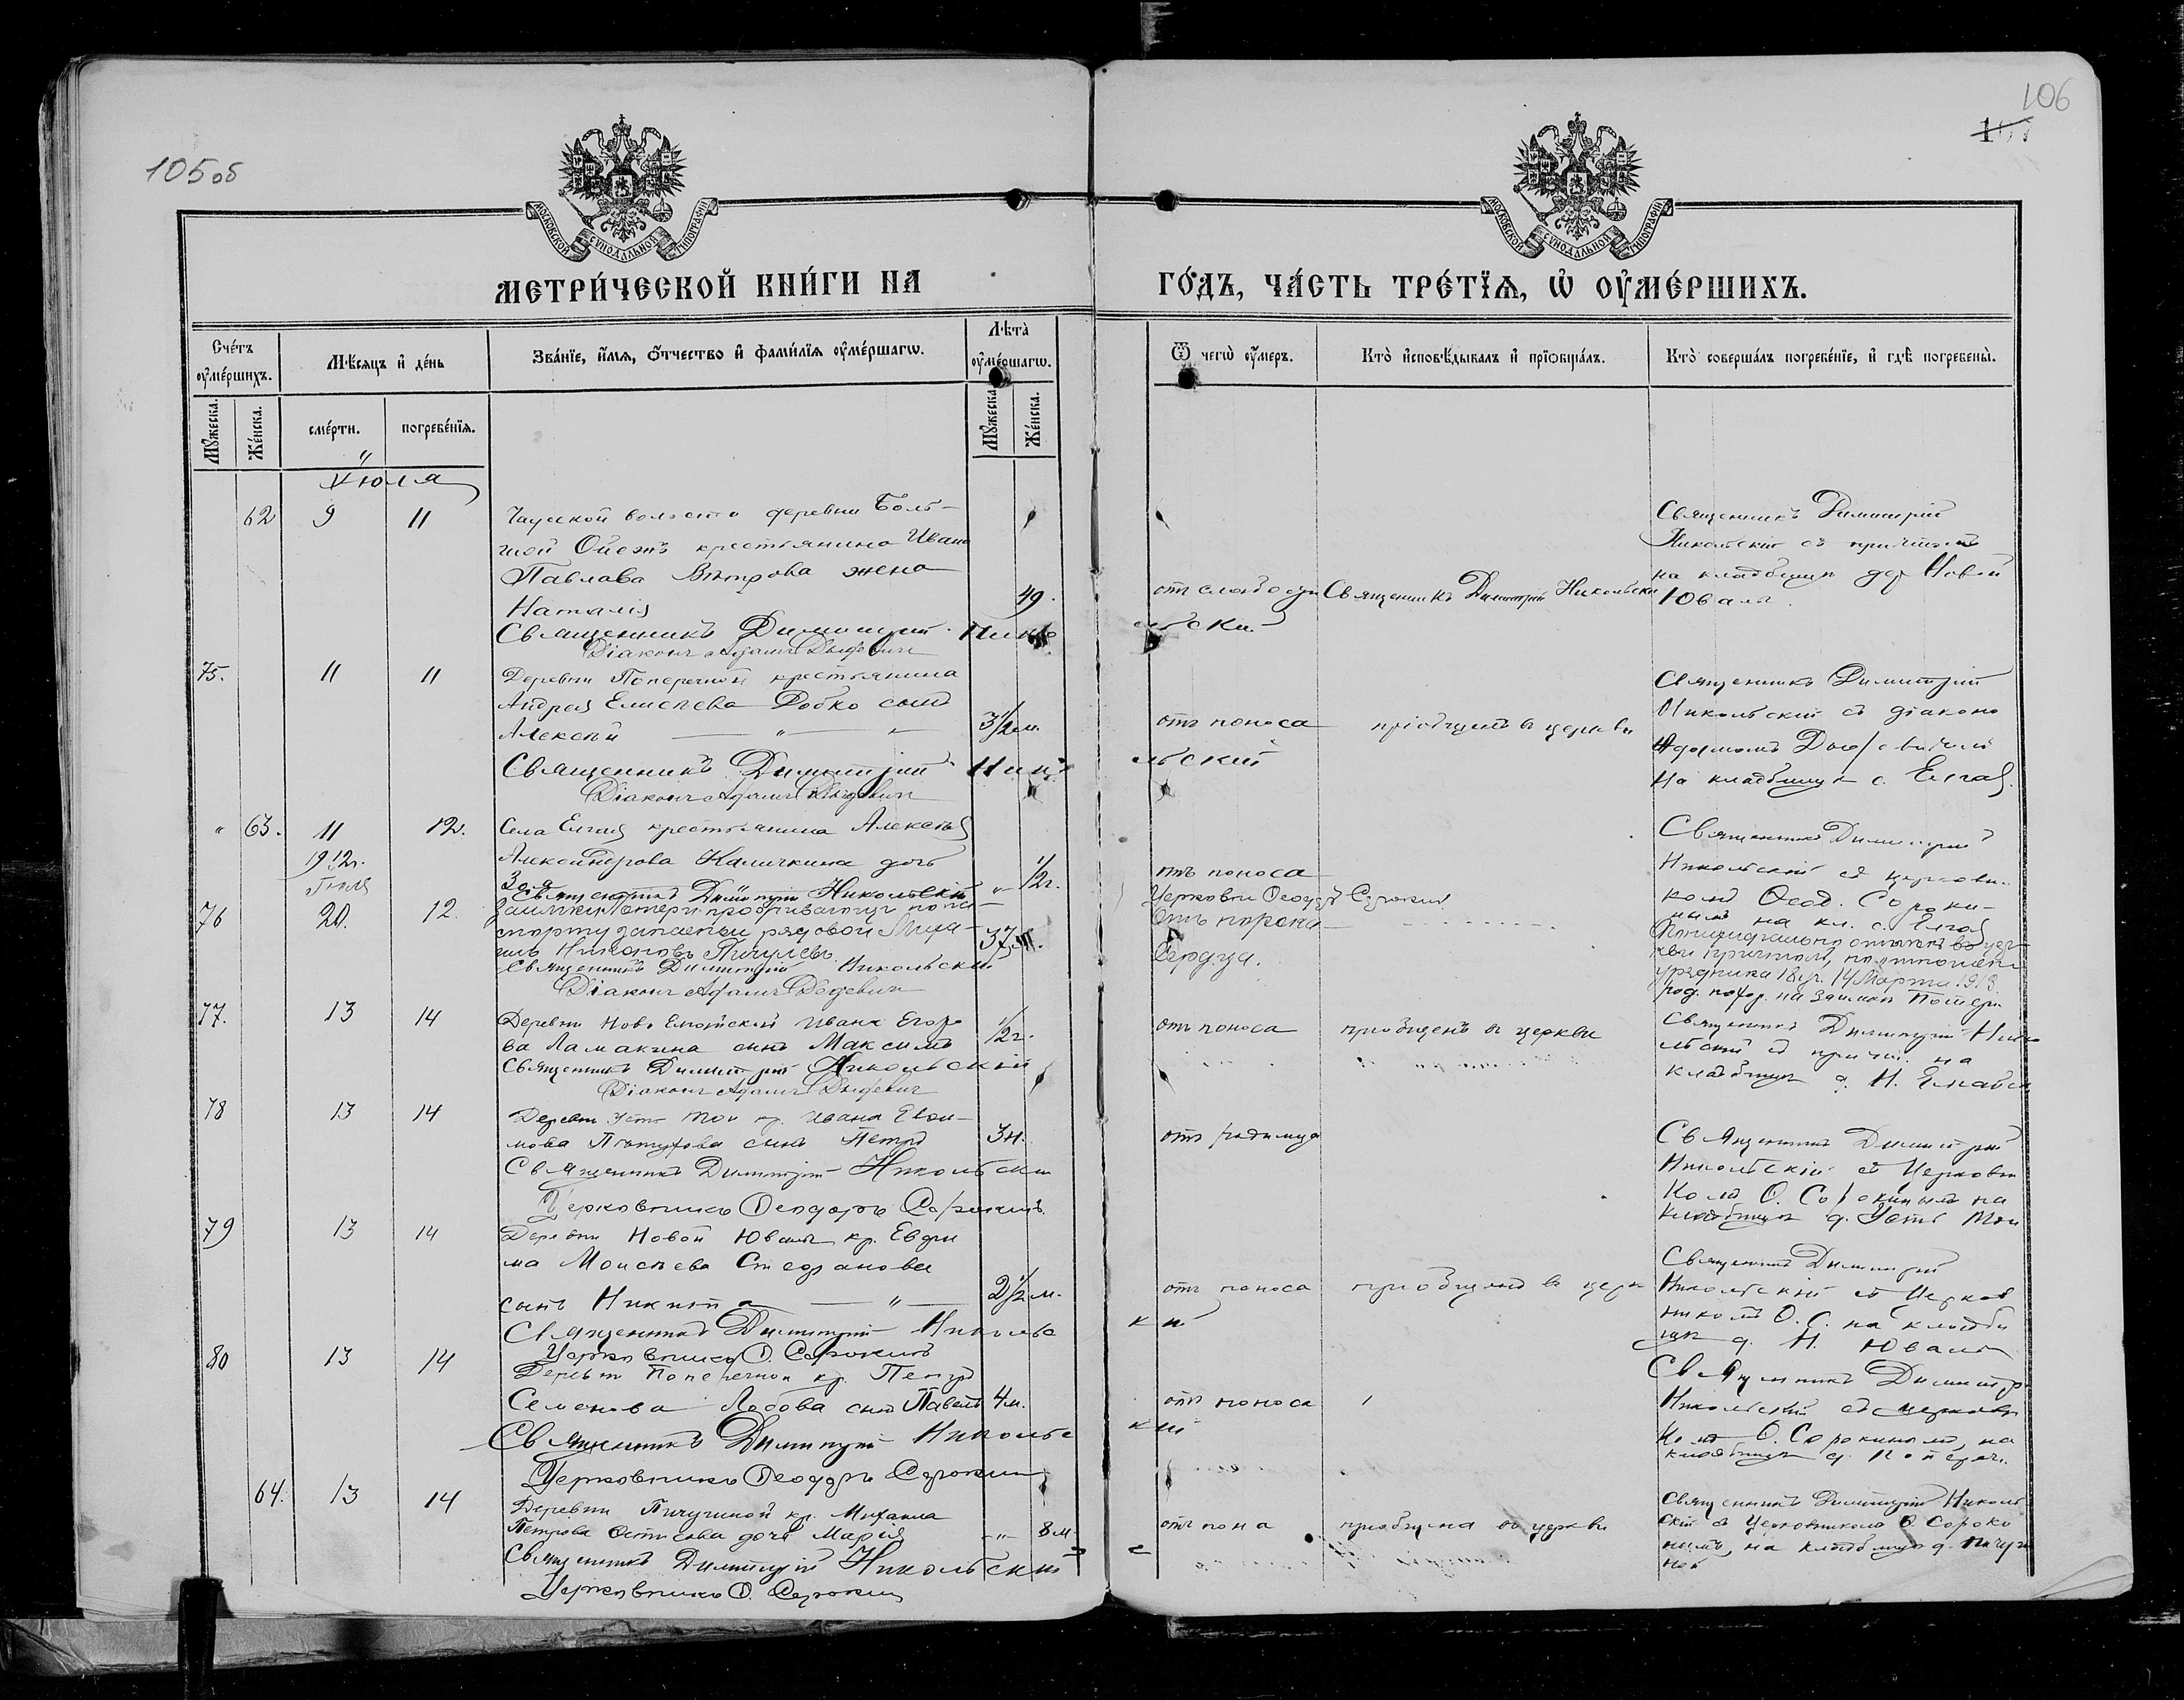 105 об
106
МОСКОВСКОЙ СѴНОДАЛЬНОЙ ТИПОГРАФІИ
МОСКОВСКОЙ СѴНОДАЛЬНОЙ ТИПОГРАФІИ
МЕТРИ́ЧЕСКОЙ КНИ́ГИ НА
ГО́ДЪ, ЧА́СТЬ ТРЕ́ТІѦ, Ѡ҆ ОУ҆МЕ́РШИХЪ.
Сче́тъ оу҆ме́ршихъ.
Мѣ́сяцъ и҆ де́нь
Зва́нїе, и҆́мѧ, ѻ҆́тчество и҆ фами́лїѧ оу҆ме́ршагѡ.
Лѣ́та̀ оу҆ме́ршагѡ.
Ѿ чегѡ̀ оу҆́меръ.
Кто̀ и҆сповѣ́дывалъ и҆ прїѡбща́лъ.
Кто̀ соверша́лъ погребе́нїе, и҆ гдѣ̀ погребены̀.
Мꙋ́жеска.
Же́нска.
сме́рти.
погребе́нїѧ.
Мꙋ́жеска.
Же́нска.
Іюля
62 9 11 волости деревни Боль-
шой крестьянина Ивана
Павлова жена
Наталія 49.
Священникъ Димитрій Николь
ьски.
Діаконъ Адамъ
отъ Священникъ Димитрій Никольскій
Священникъ Димитрій
Никольскій съ причтомъ
на кладбищѣ дер Новой
Ювалы.
75. 11 11 Деревни Поперечной крестьянина
Андрея Елисѣева сынъ
Алексѣй — „ — 3 1/2 м.
Священникъ Димитрій Нико
льскій
Діаконъ Адамъ
отъ поноса пріобщенъ в церкви
Священникъ Димитрій
Никольскій съ діаконо
Адамомъ
На кладбищѣ с. Елгая.
„ 63. 11 12. Села Елгая крестьянина Алексѣя
1912г. Александрова Каличкина дочь
Іюля Зоя „ 1/2 г.
Священникъ Димитрій Никольскій
отъ поноса
Церковн Ѳеодоръ Сорокинъ
Священникъ Димитрій
Никольскій съ церковни
комъ Ѳеод. Сороки-
нымъ на кл. с. Елгая
76 20. 12. проживающій по пас-
порту запасный рядовой Миха-
илъ Никоновъ Пичугевъ. 37
Священникъ Димитрій Никольскій
Діаконъ Адамъ
Отъ порока
Сердца.
урядника 18 г. 14 Марта 1913
77. 13 14 Деревни Ново Елгайской Ивана Егоро
ва Ламакина сынъ Максимъ 1/2 г.
Священникъ Димитрій Никольскій
Діаконъ Адамъ
отъ поноса пріобщенъ в церкви
Священникъ Димитрій Нико
льскій съ причт. на
кладбищѣ д. Н. Елгайск
78 13 14 Деревни Усть Тои кр. Ивана Евѳи-
мова Пѣтухова сынъ Петръ 3 н.
Священникъ Димитрій Никольскій
Церковникъ Ѳеодоръ Сорокинъ.
отъ родимца
Священникъ Димитрій
Никольскій съ Церковни
комъ Ѳ. Сорокинымъ на
кладбищѣ д. Усть Тои
79 13 14 Деревни Новой Ювалы кр. Евдки
ма Моисѣева Стефанова
сынъ Никита — „ — 2 1/2 м.
Священникъ Димитрій Никольс
кій
Церковникъ Ѳ. Сорокинъ
отъ поноса пріобщенъ в церк
Священникъ Димитрій
Никольскій съ Церков
никомъ Ѳ. С. на кладби
щѣ д. Н. Ювалы
80 13 14 Деревни Поперечной кр. Петра
Семенова Лобова сынъ Павелъ 4 м.
Священникъ Димитрій Никольс
кій
Церковникъ Ѳеодоръ Сорокинъ
отъ поноса
Священникъ Димитр
Никольскій съ церковн
комъ Ѳ. Сорокинымъ, на
кладбищѣ д. Попереч.
64. 13 14 Деревни Пичугиной кр. Михаила
Петрова дочь Марія „ 8 м
Священникъ Димитрій Никольскій
Церковникъ Ѳ. Сорокинъ
отъ пона пріобщена въ церкви
с
Священникъ Димитрій Николь
скій съ Церковникомъ Ѳ. Сороки
нымъ, на кладбищѣ д. Пичуги
ной